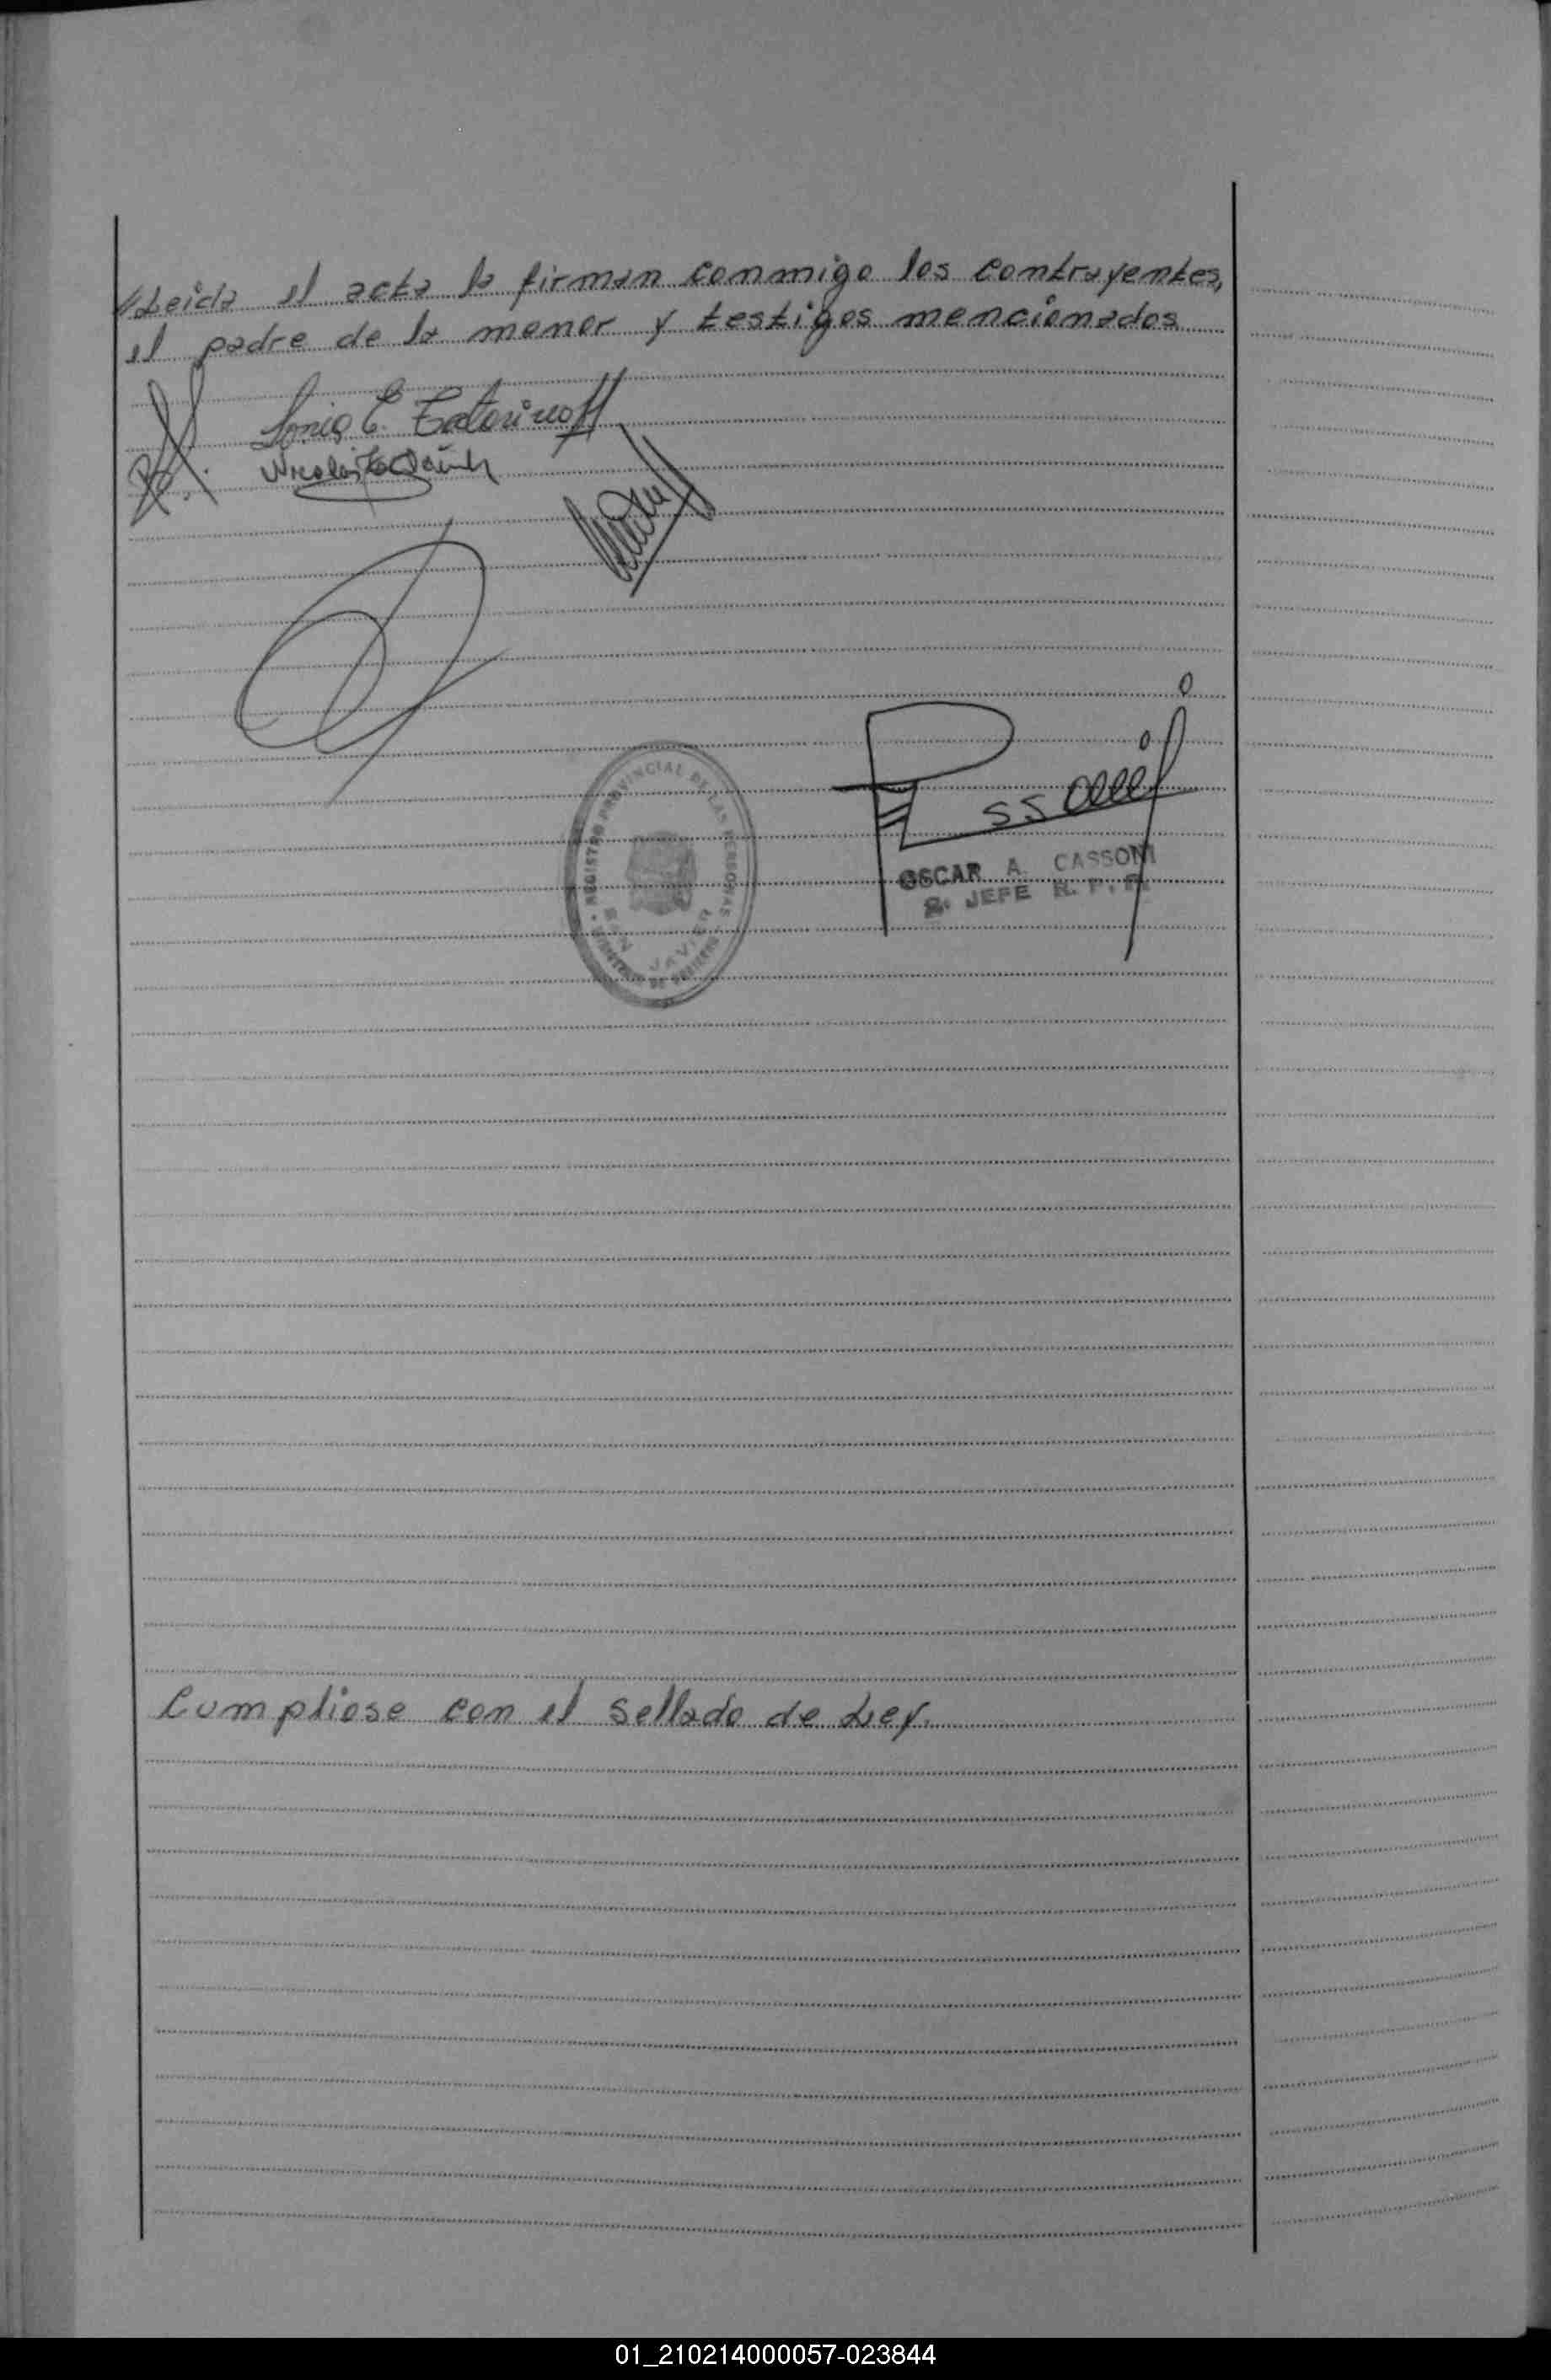 //Leida el acta la firman conmigo los contrayentes,
el padre de la menor y testigos mencionados
Sonia E.
REGISTRO PROVINCIAL DE LAS PERSONAS
MINISTERIO DE GOBIERNO
SAN JAVIER
OSCAR A. CASSONI
2º JEFE R. P. P.
Cumpliose con el sellado de Ley.
01_210214000057-023844